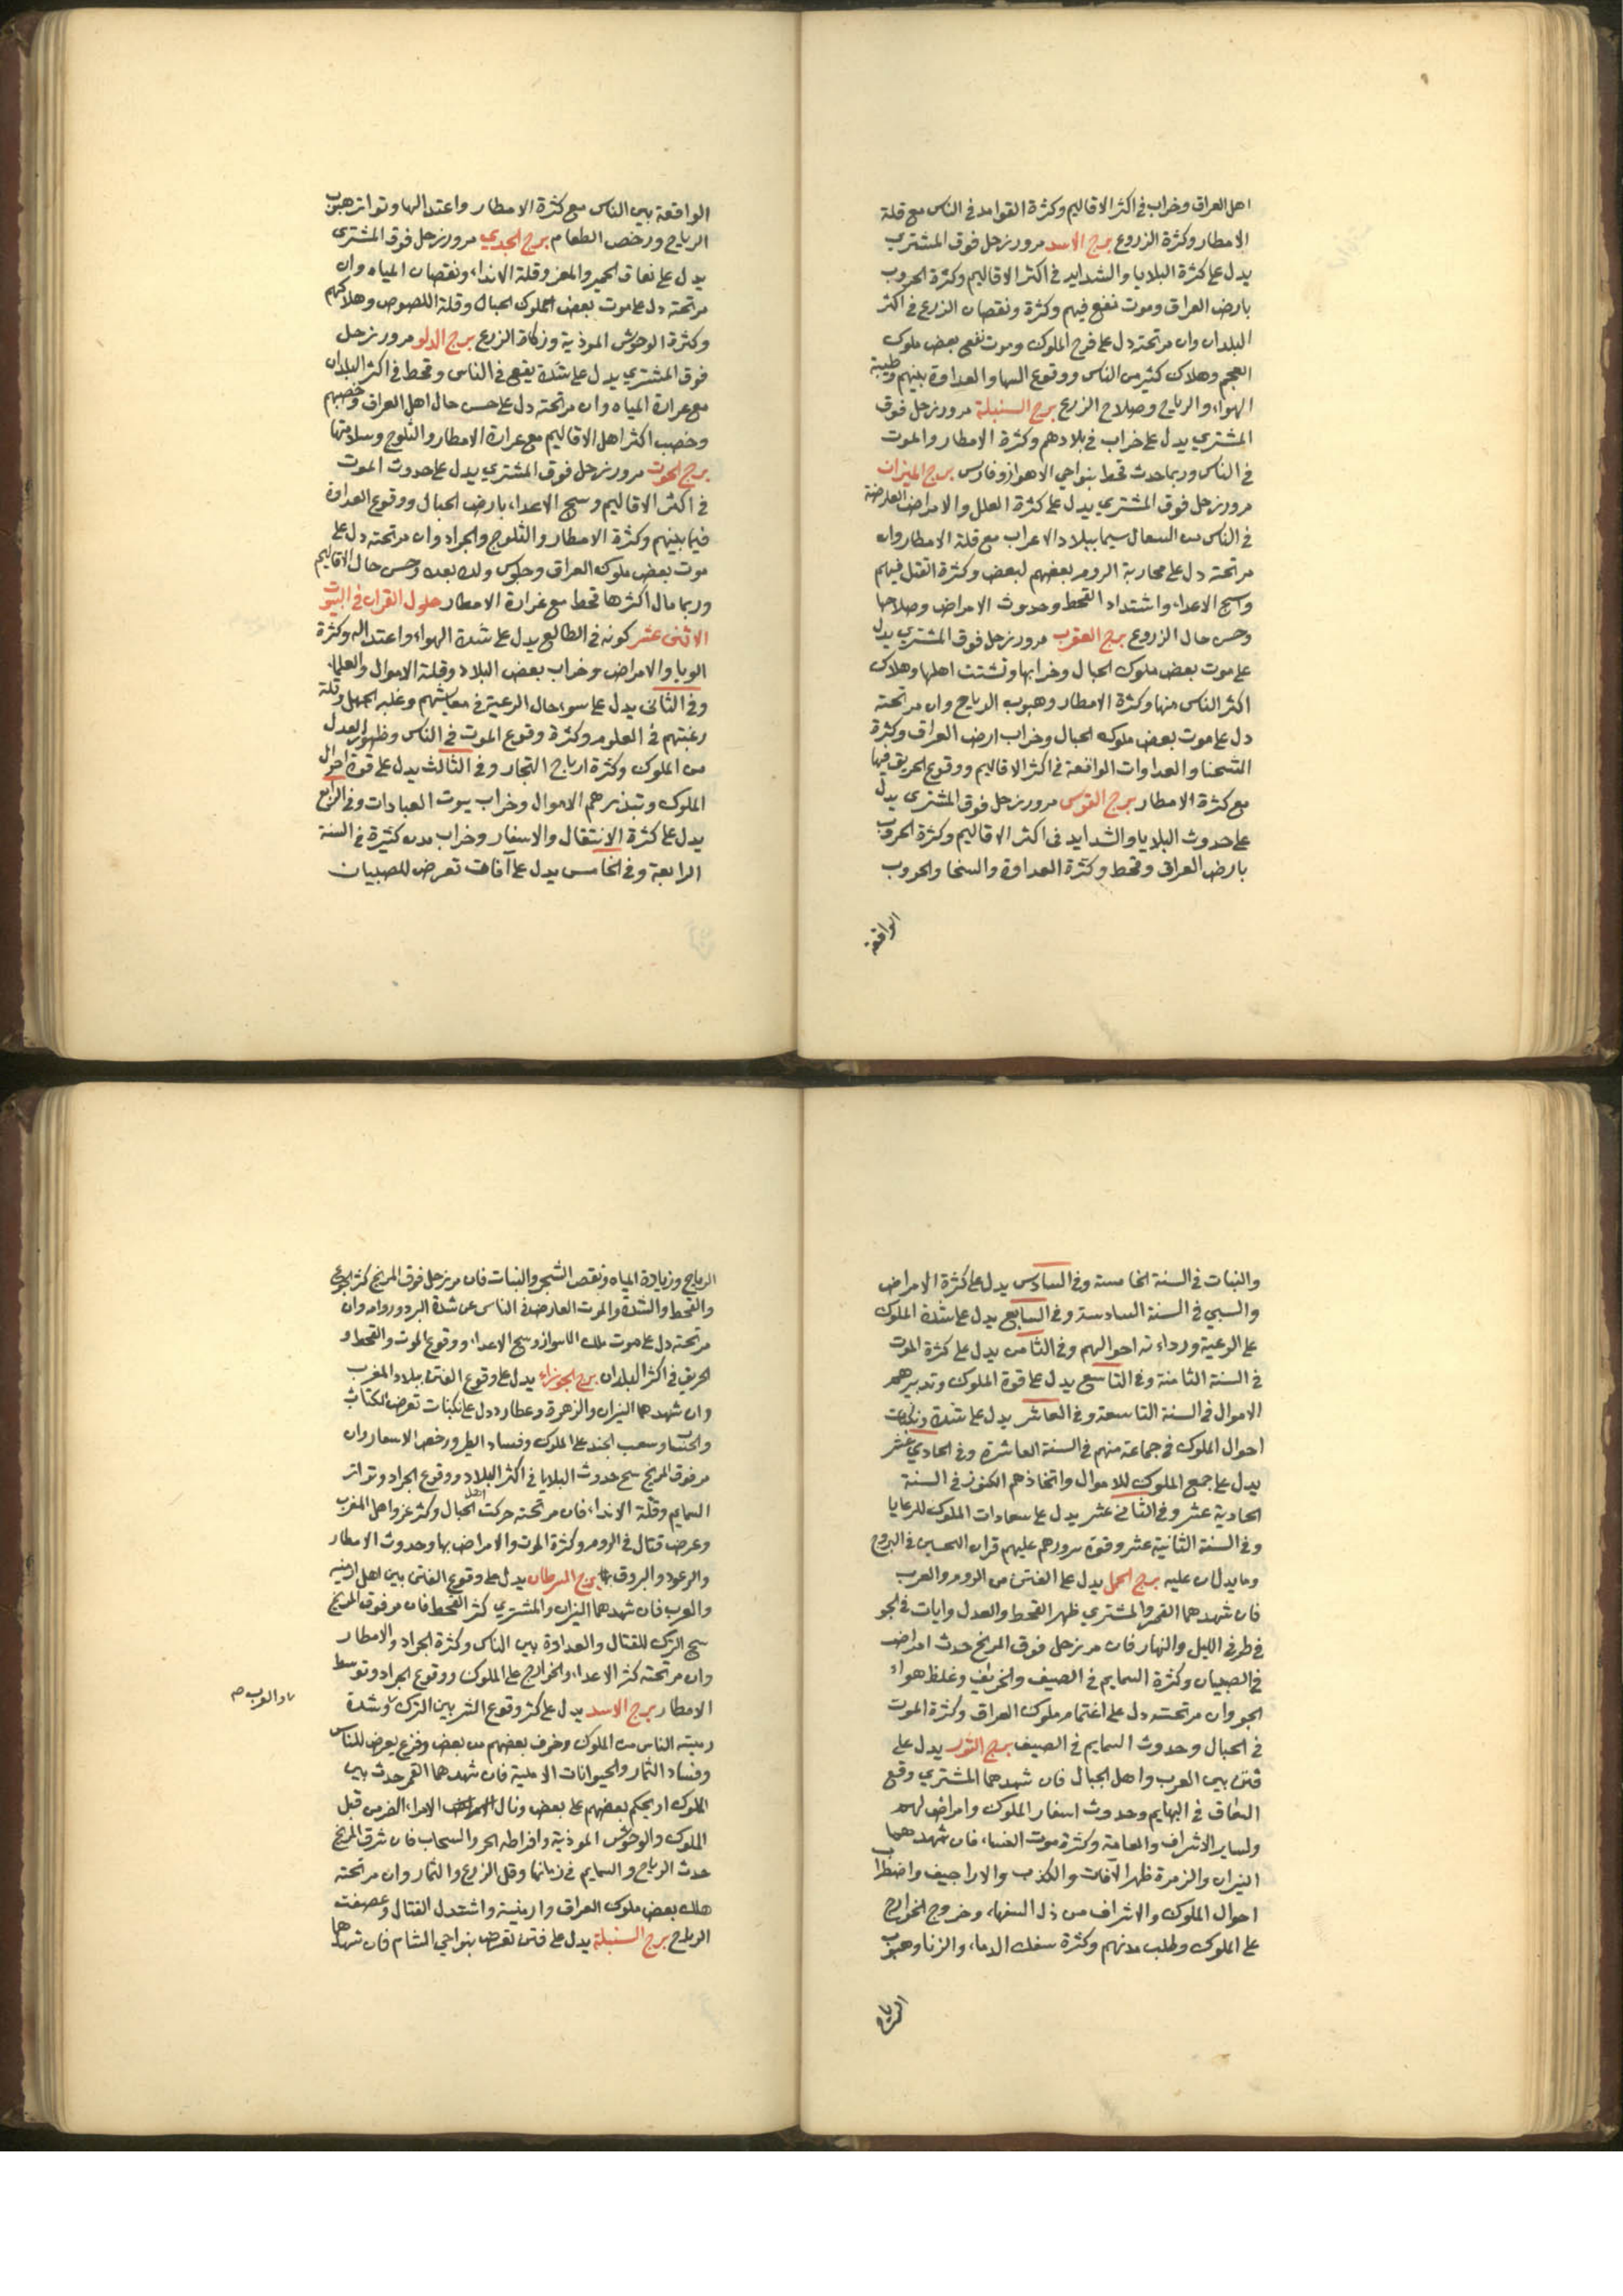 اهل العراق وخراب في اكثر الاقاليم وكثرة القوامد في الناس مع قلة
الامطار وكثرة الزروع برج الاسد مرور زحل فوق المشتري
يدل على كثرة البلايا والشدايد في اكثر الاقاليم وكثرة الحروب
بارض العراق وموت نفع فيهم وكثرة ونقصان الزرع في اكثر
البلدان وان مر تحته دل على فرح الملوك وموت بعض ملوك
العجم وهلاك كثير من الناس ووقوع والعداوة بينهم وطيبة
الهواء والرياح وصلاح الزرع برج السنبلة مرور زحل فوق
المشتري يدل على خراب في بلادهم وكثرة الامطار والموت
في الناس وربما حدث قحط بنواحي الاهواز وفارس برج الميزان
مرور زحل فوق المشتري يدل على كثرة العلل والامراض العارضة
في الناس من السعال سيما ببلاد الاعراب مع قلة الامطار وان
مر تحته دل على محاربة الروم بعضهم لبعض وكثرة القتل فيهم
وسبح الاعداء واشتداد القحط وحدوث الامراض وصلاحها
وحسن حال الزروع برج العقرب مرور زحل فوق المشتري يدل
على موت بعض ملوك الجبال وخرابها وتشتت اهلها وهلاك
اكثر الناس منها وكثرة الامطار وهبوب الرياح وان مر تحته
دل على موت بعض ملوك الجبال وخراب ارض العراق وكثرة
الشحنا والعداوات الواقعة في اكثر الاقاليم ووقوع الحريق فيها
مع كثرة الامطار برج القوس مرور زحل فوق المشتري يدل
على حدوث البلايا والشدايد في اكثر الاقاليم وكثرة الحروب
بارض العراق وقحط وكثرة العداوة والشحنا والحروب
الواقعة
الواقعة بين الناس مع كثرة الامطار واعتدالها وتواتر هبوب
الرياح ورخص الطعام برج الجدي مرور زحل فوق المشترى
يدل على نعاق الحمير والمعز وقلة الانداء ونقصان المياه وان
مر تحته دل على موت بعض ملوك الجبال وقلة اللصوص وهلاكهم
وكثرة الوحوش الموذية وزكاة الزرع برج الدلو مرور زحل
فوق المشتري يدل على شدة يقع في الناس وقحط في اكثر البلدان
مع غرارة المياه وان مر تحته دل على حسن حال اهل العراق وخصبهم
وخصب اكثر اهل الاقاليم مع غرارة الامطار والثلوج وسلامتها
برج الحوت مرور زحل فوق المشتري يدل على حدوث الموت
في اكثر الاقاليم وسبح الاعداء بارض الجبال ووقوع العداوة
فيما بينهم وكثرة الامطار والثلوج والجراد وان مر تحته دل على
موت بعض ملوك العراق وجلوس ولد بعده وحسن حال الاقاليم
وربما مال اكثرها قحط مع غرارة الامطار حلول القران في البيوت
الاثنى عشر كونه في الطالع يدل على شدة الهواء واعتداله وكثرة
الوبا والامراض وخراب بعض البلاد وقلة الاموال والعلما
وفي الثاني يدل على سوء حال الرعية في معايشهم وغلبه الجهل وقلة
رغبتهم في العلوم وكثرة وقوع الموت في الناس وظهور العدل
من الملوك وكثرة ارباح التجار وفي الثالث يدل على قوة احوال
الملوك وتبذيرهم الاموال وخراب بيوت العبادات وفي الرابع
يدل على كثرة الانتقال والاسفار وخراب مدن كثيرة في السنة
الرابعة وفي الخامس يدل على آفات تعرض للصبيان
والنبات في السنة الخامسة وفي السادس يدل على كثرة الامراض
والسبي في السنة السادسة وفي السابع يدل على شدة الملوك
على الرعية ورداءة احوالهم وفي الثامن يدل على كثرة الموت
في السنة الثامنة وفي التاسع يدل على قوة الملوك وتدبيرهم
الاموال في السنة التاسعة وفي العاشر يدل على شدة ونكبات
احوال الملوك في جماعة منهم في السنة العاشرة وفي الحادي عشر
يدل على جمع الملوك للاموال واتخاذهم الكنوز في السنة
الحادية عشر وفي الثاني عشر يدل على سعادات الملوك للرعايا
وفي السنة الثانية عشر وقوة سرورهم عليهم قران النحسين في البروج
وما يدلان عليه برج الحمل يدل على الفتن من الروم والعرب
فان شهدهما القمر والمشتري ظهر القحط والعدل وايات في الجو
في طرفي الليل والنهار فان مر زحل فوق المريخ حدث امراض
في الصبيان وكثرة السمايم في الصيف والخريف وغلظ هواء
الجو وان مر تحته دل على اغتمام ملوك العراق وكثرة الموت
في الجبال وحدوث السمايم في الصيف برج الثور يدل على
فتن بين العرب واهل الجبال فان شهدهما المشتري وقع
النعاق في البهايم وحدوث اسفار الملوك وامراض لهم
ولساير الاشراف والعامة وكثرة موت النساء فان شهدهما
النيران والزهرة ظهر الآفات والكذب والاراجيف واضطراب
احوال الملوك والاشراف من ذل السفهاء وخروج الخوارج
على الملوك وطلب مدنهم وكثرة سفك الدماء والزنا وهبوب
الرياح
الرياح وزيادة المياه ونقص الشجر والنبات فان مر زحل فوق المريخ كثر الجوع
والقحط والشدة والموت العارض في الناس من شدة البرد ودوامه وان
مر تحته دل على موت ملك وسبح الاعداء ووقوع الموت والقحط و
الحريق في اكثر البلدان برج الجوزاء يدل على وقوع الفتن ببلاد المغرب
وان شهدهما النيران والزهرة وعطارد دل على نكبات تعرض للكتاب
والحساب وسغب الجند على الملوك وفساد الطير ورخص الاسعار وان
مر فوق المريخ سبح حدوث البلايا في اكثر البلاد ووقوع الجراد وتواتر
السمايم وقلة الانداء فان مر تحته حركت اهل الجبال وكثر غزو اهل المغرب
وعرض قتال في الروم وكثرة الموت والامراض بها وحدوث الامطار
والرعود والبروق برج السرطان يدل على وقوع الفتن بين اهل ارمنيه
والعرب فان شهدهما النيران والمشتري كثر القحط فان مر فوق المريخ
سبح الترك للقتال والعداوة بين الناس وكثرة الجراد والامطار
وان مر تحته كثر الاعداء والخوارج على الملوك ووقوع الجراد وتوسط
الامطار برج الاسد يدل على كثر وقوع الشر بين الترك وشدة
والعرب صم
رهبته الناس من الملوك وخوف بعضهم من بعض وفزع يعرض للناس
وفساد الثمار والحيوانات الاهلية فان شهدهما القمر حدث بين
الملوك بعضهم على بعض ونال الامراء الضر من قبل
الملوك والوحوش الموذية وافراطه الحر والسحاب فان شرق المريخ
حدث الرياح والسمايم في زمانها وقل الزرع والثمار وان مر تحته
هلك بعض ملوك العراق وارمنية واشتدل القتال وعصفت
الرياح برج السنبلة يدل على فتن تعرض بنواحي الشام فان شهدهما